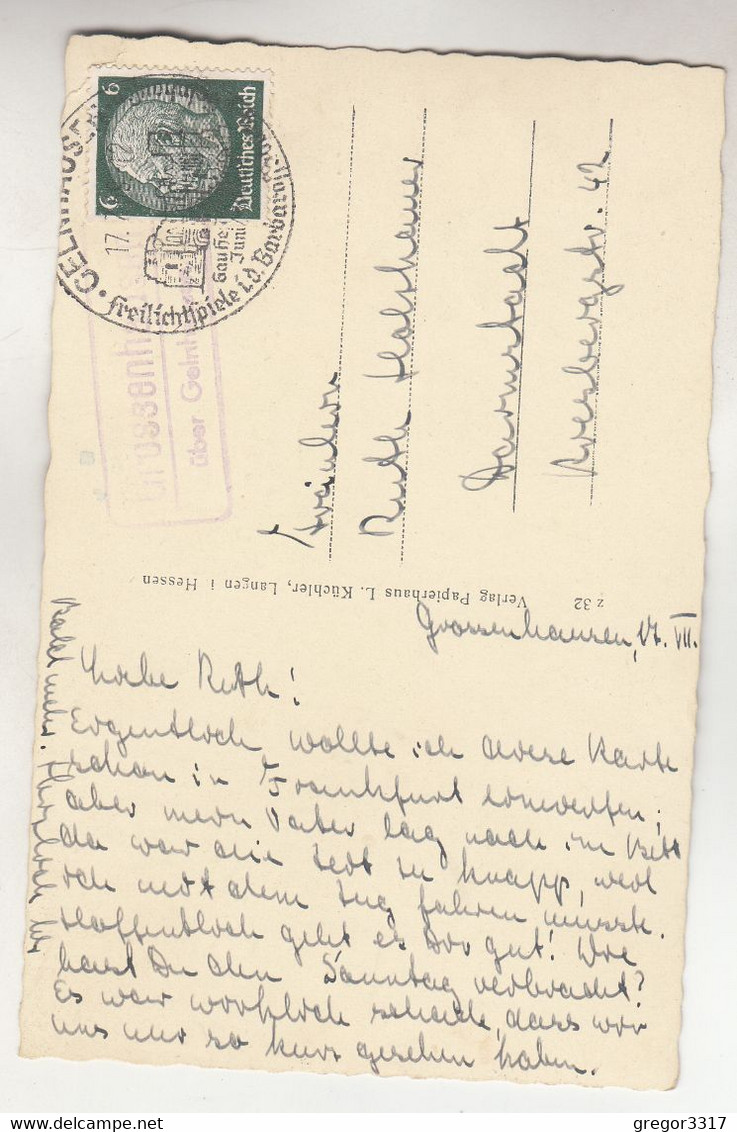 GELNHAUSEN
17.7
Freilichtspiele i.d. Barbaross
Juni
6
6
Deutsches Reich
Grossenh
über Geln
Fräulein
Ruth
Darmstadt
Roesbergstr. 42
z 32 Verlag Papierhaus L. Küchler, Langen i Hessen
Grossenhausen, 17. VII.
Liebe Ruth!
Eigentlich wollte ich diese Karte
schon in Frankfurt einwerfen;
aber mein Vater lag noch im Bett
da war die Zeit zu knapp, weil
ich mit dem Zug fahren musste.
Hoffentlich geht es Dir gut! Wie
hast Du den Sonntag verbracht?
Es war wirklich schade, dass wir
uns nur so kurz gesehen haben.
Bald mehr. Herzlich
gregor3317